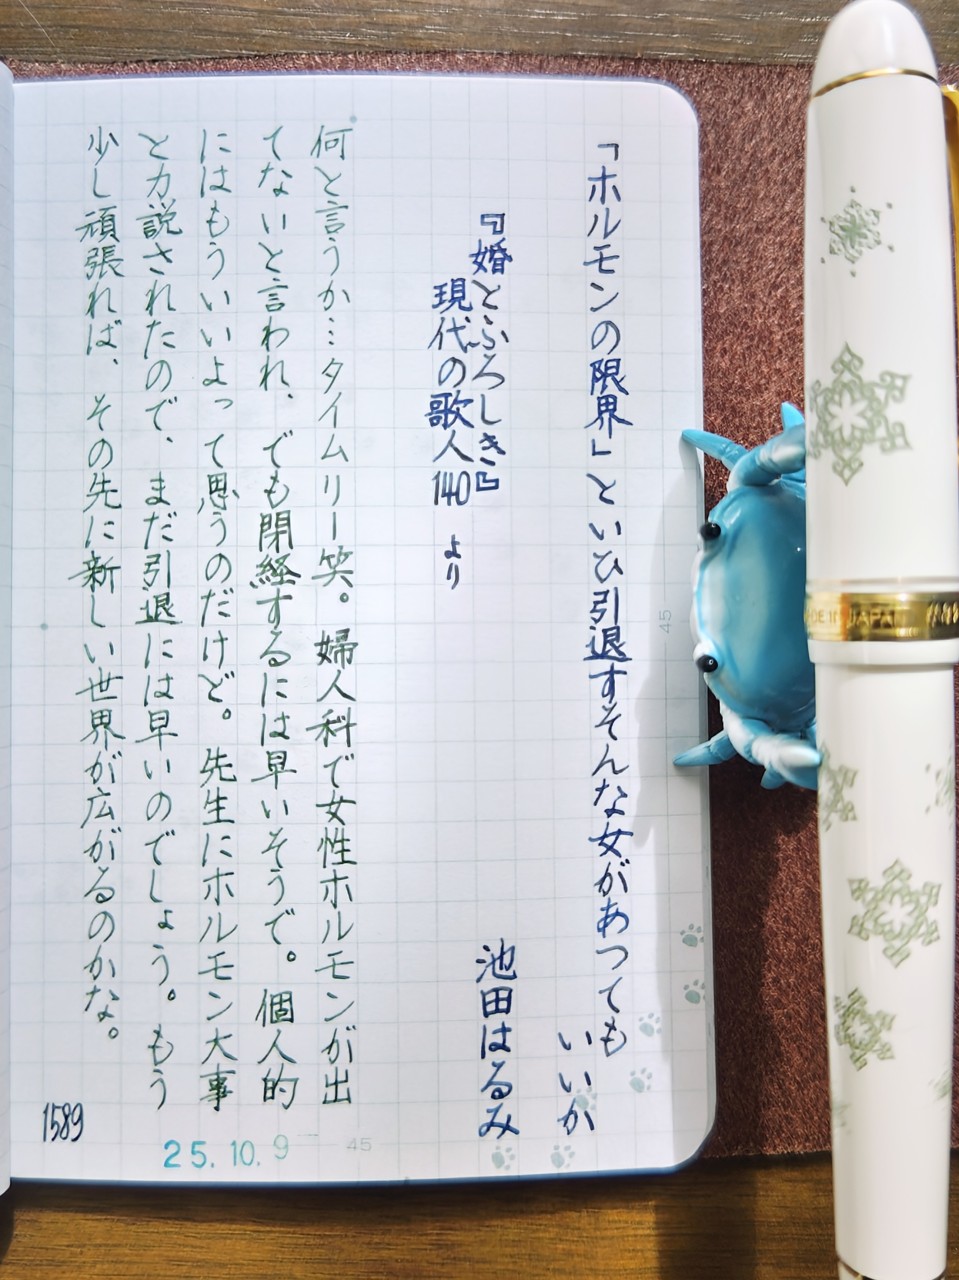 「ホルモンの限界」といひ引退すそんな女があつても
いいか
『婚とふろしき』
池田はるみ
現代の歌人140 より
何と言うか…タイムリー笑。婦人科で女性ホルモンが出
てないと言われ、でも閉経するには早いそうで。個人的
にはもういいよって思うのだけど。先生にホルモン大事
と力説されたので、まだ引退には早いのでしょう。もう
少し頑張れば、その先に新しい世界が広がるのかな。
1589
25.10.9
45
45
JAPAN